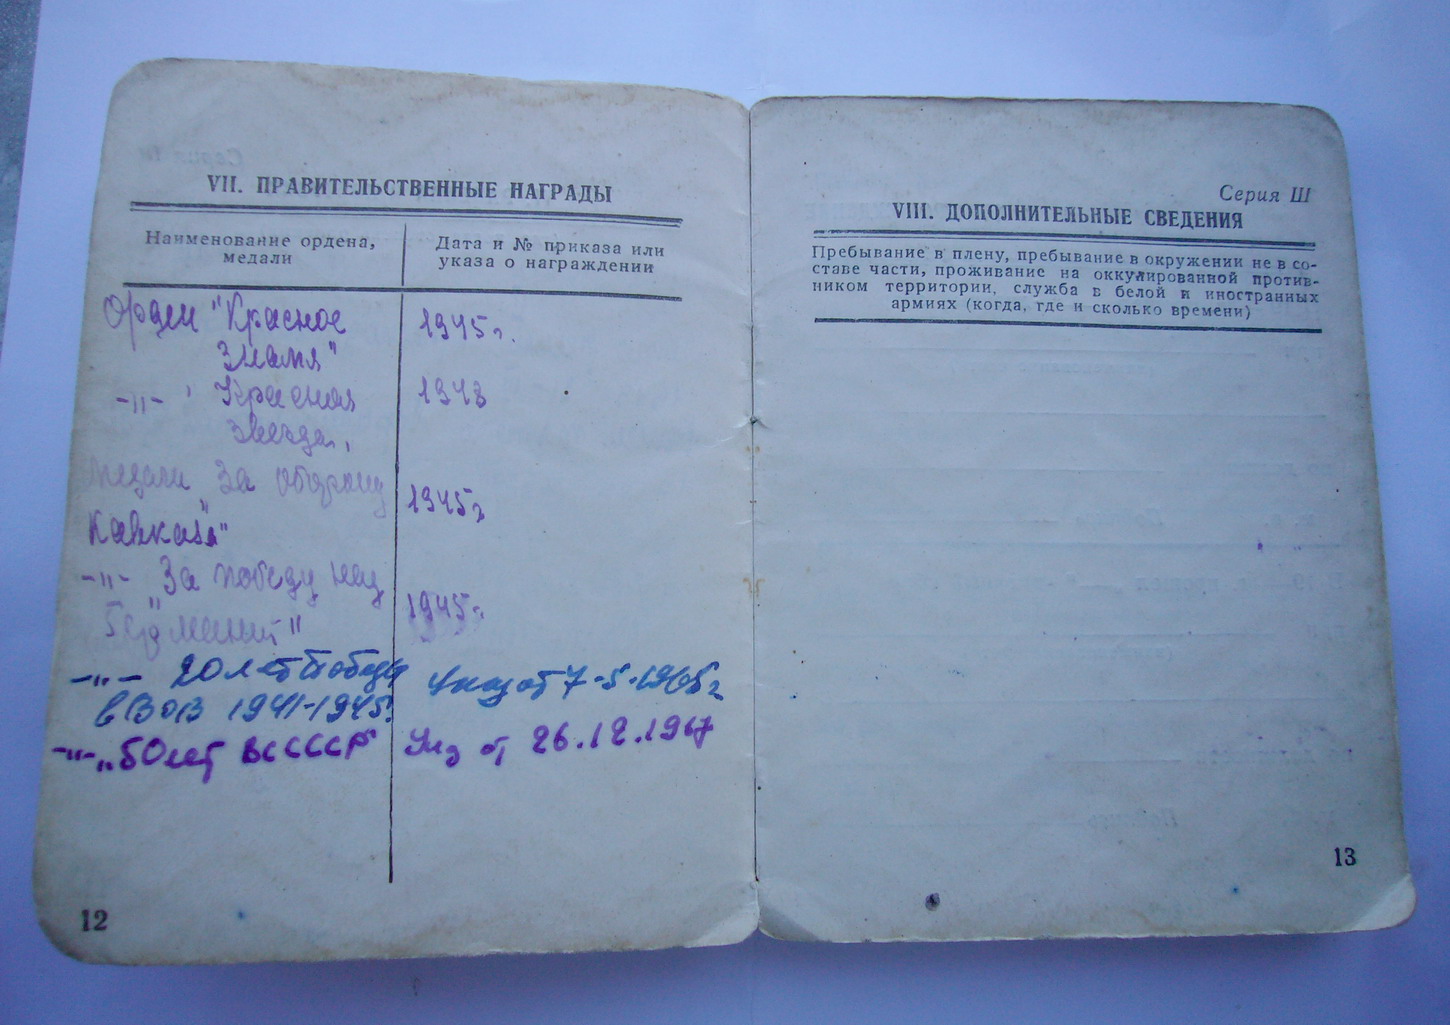 VII. ПРАВИТЕЛЬСТВЕННЫЕ НАГРАДЫ
Наименование ордена,
медали
Дата и № приказа или
указа о награждении
Орден "Красное
знамя"
1945г.
-„- ' Красная
звезда,
1943
медали "За оборону
Кавказа"
1945г
-„- "За победу над
Германий"
1945г.
-„- 20 лет Победы
в ВОВ 1941-1945г.
Указ от 7-5-1965г
-„- „50 лет ВС СССР"
Указ от 26.12.1967
12
Серия Ш
VIII. ДОПОЛНИТЕЛЬНЫЕ СВЕДЕНИЯ
Пребывание в плену, пребывание в окружении не в со-
ставе части, проживание на оккулированной против-
ником территории, служба в белой и иностранных
армиях (когда, где и сколько времени)
13